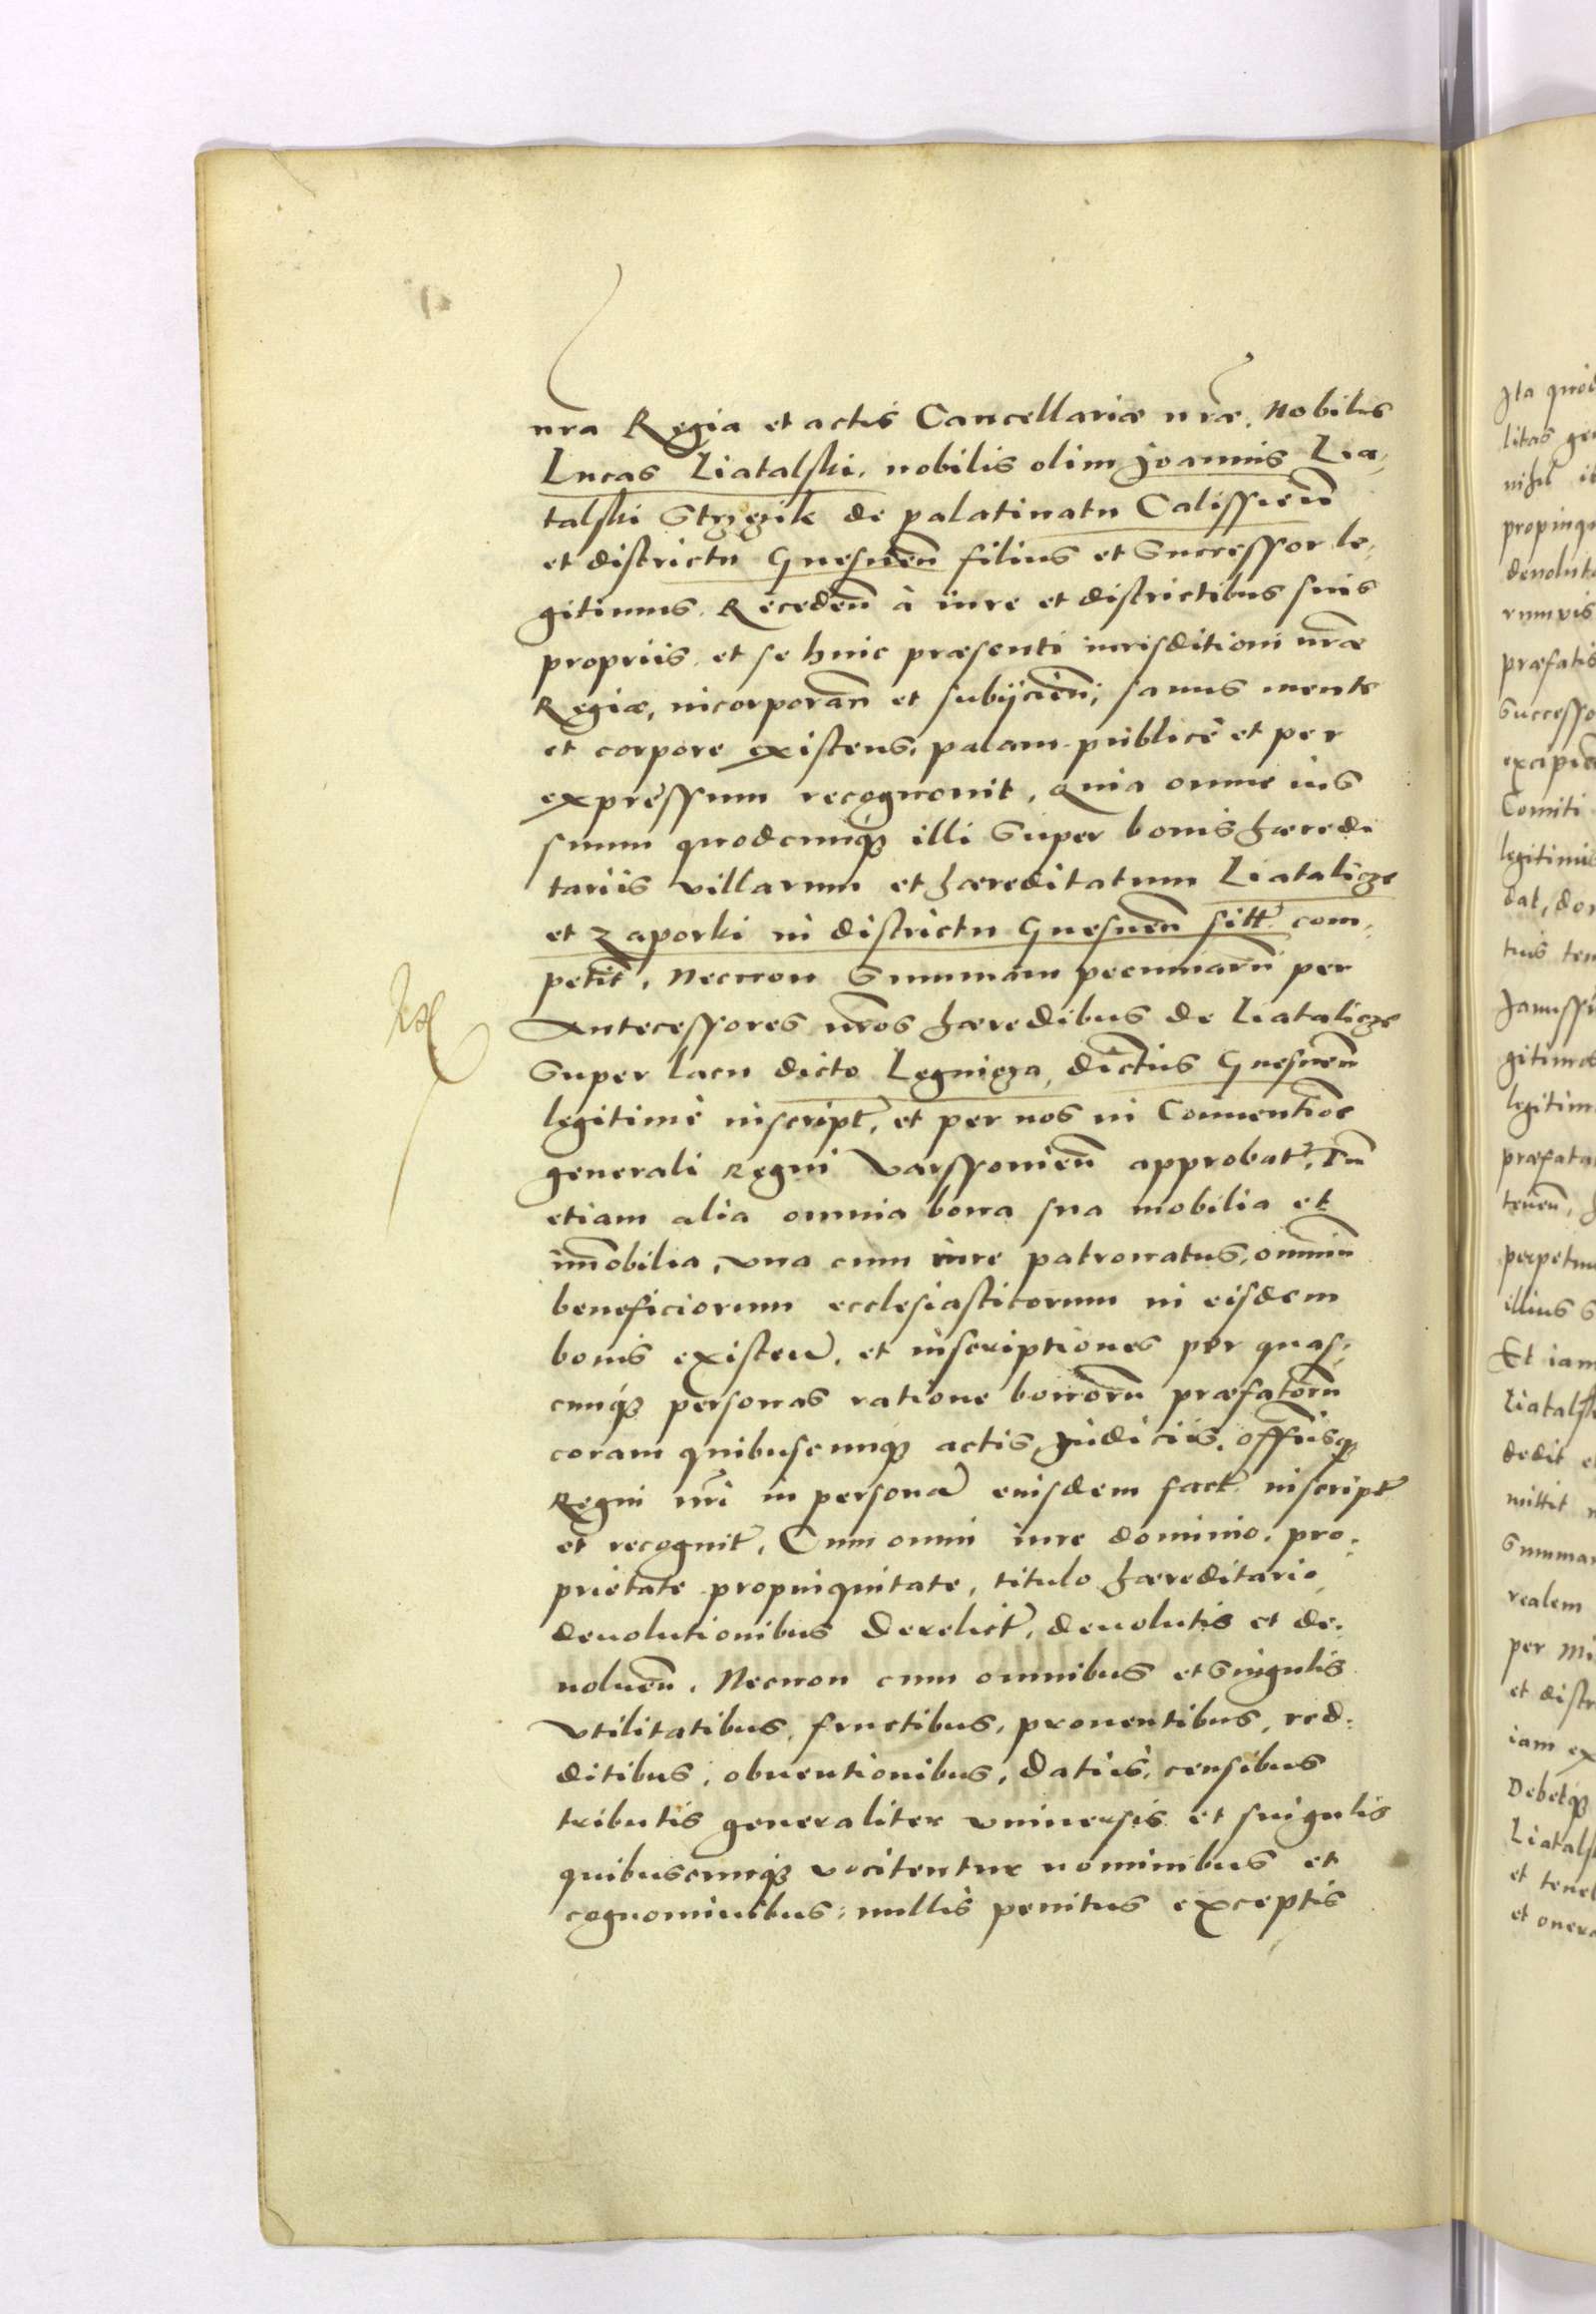 nra Regia et actis Cancellariæ nræ. Nobilis
Lucas Liatalski. nobilis olim Joannis Lia,
talski Strzezik de palatinatu Calissien̄
et districtu Gnesnen̄ filius et Successor le,
gitimus. Receden̄ à iure et districtibus suis
propriis et se huic præsenti iurisditioni nræ
Regiæ, incorporan̄ et subijcien̄, sanus mente
et corpore existens, palam publicè et per
expressum recognouit, Quia omne ius
suum quodcunq3 illi Super bonis hæredi
tariis villarum et hæreditatum Liatalicze
et Zaporki in districtu Gnesnen̄ sitt com,
petit, Necnon Summam pecuniarū per
Antecessores nros hæredibus de Liatalicze
Super lacu dicto Legnicza, dictius Gnesnen̄
legitimè inscript, et per nos in Conuentioe
generali Regni Varssouien̄ approbat, Tū
etiam alia omnia bona sua mobilia et
im̄obilia, vna cum iure patronatus, omniū
beneficiorum ecclesiasticorum in eisdem
bonis existen̄, et inscriptiones per quas,
cunq3 personas ratione bonorū præfatorū
coram quibuscunq3 actis, Judiciis, offiisq3
Regni nri in persona eiusdem fact inscript
et recognit, Cum omni iure dominio, pro,
prietate propinquitate, titulo hæreditario
deuolutionibus derelict, deuolutis et de,
uoluen̄. Necnon cum omnibus et Singulis
vtilitatibus, fructibus, prouentibus, red,
ditibus, obuentionibus, datiis, censibus
tributis generaliter vniuersis et singulis
quibuscunq3 vocitentur nominibus et
cognominibus, nullis penitus exceptis
Ita quod
litas
nihil
propinq
deuolut
præfatis
Successo
Comiti
legitimis
dat, do
gitima
legitim
præfata
perpetu
illius
Et iam
Liatalsk
dedit
mittit
Summa
realem
per
et distr
iam ex
Debetq3
Liatals
et tene
et onera